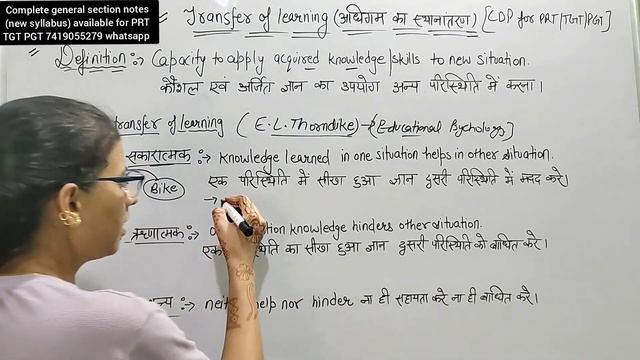 Complete general section notes
(new syllabus) available for PRT
TGT PGT 7419055279 whatsapp
= Transfer of learning (अधिगम का स्थानांतरण) [CDP for PRT/TGT/PGT]
Definition :→ Capacity to apply acquired knowledge/skills to new situation.
कौशल एवं अर्जित ज्ञान का उपयोग अन्य परिस्थिति में करना।
transfer of learning (E.L. Thorndike) → [Educational Pychology]
सकारात्मक :→ Knowledge learned in one situation helps in other situation.
Bike एक परिस्थिति में सीखा हुआ ज्ञान दुसरी परिस्थिति में मदद करे।
→
ऋणात्मक :→ knowledge hinders other situation.
एक का सीखा हुआ ज्ञान दुसरी परिस्थिति को बाधित करे।
:→ help nor hinder ना ही सहायता करे ना ही बाधित करे।